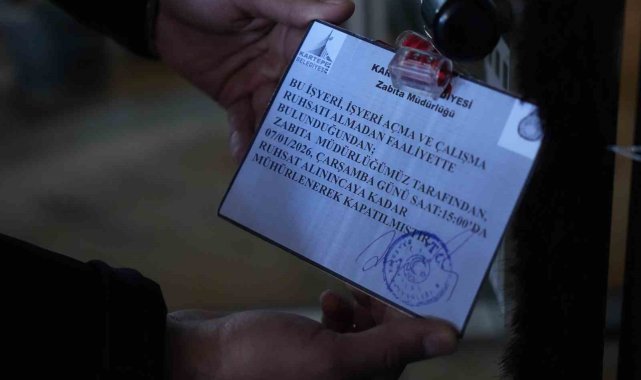 KARTEPE
BELEDİYESİ
KAR EDİYESİ
Zabıta Müdürlüğü
BU İŞYERİ, İŞYERİ AÇMA VE ÇALIŞMA
RUHSATI ALMADAN FAALİYETTE
BULUNDUĞUNDAN;
ZABITA MÜDÜRLÜĞÜMÜZ TARAFINDAN,
07/01/2026, ÇARŞAMBA GÜNÜ SAAT:15:00'DA
RUHSAT ALININCAYA KADAR
MÜHÜRLENEREK KAPATILMIŞTIR.